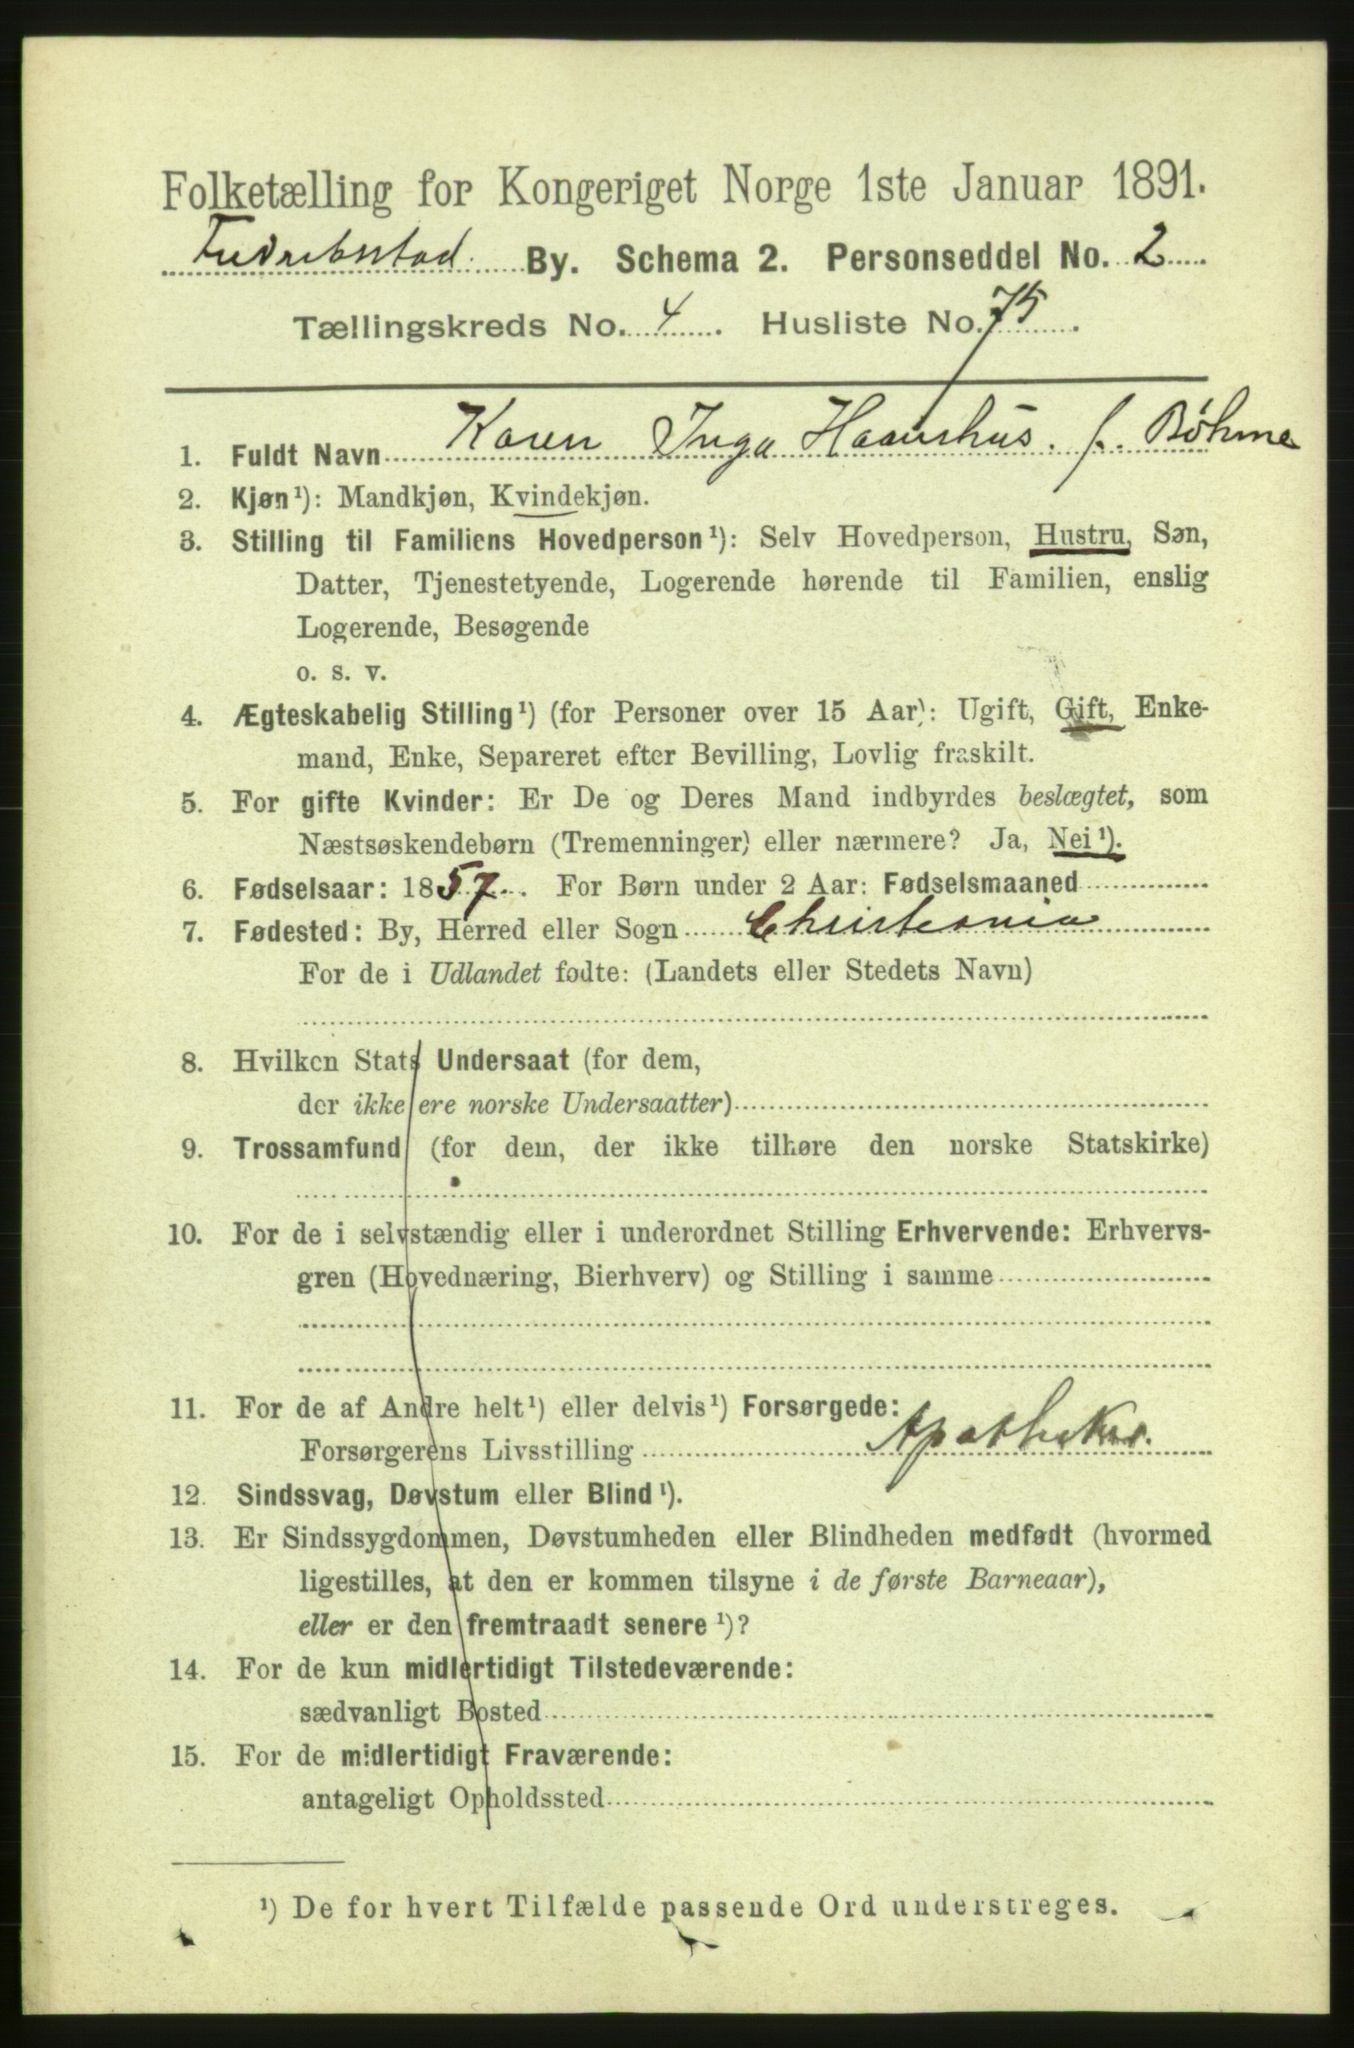 Folketælling for Kongeriget Norge 1ste Januar 1891.
Fredrikstad By. Schema 2. Personseddel No. 2
Tællingskreds No. 4. Husliste No. 75.
1. Fuldt Navn Karen Inga Haanshus. f. Bøhme
2. Kjøn¹): Mandkjøn, Kvindekjøn.
3. Stilling til Familiens Hovedperson¹): Selv Hovedperson, Hustru, Søn,
Datter, Tjenestetyende, Logerende hørende til Familien, enslig
Logerende, Besøgende
o. s. v.
4. Ægteskabelig Stilling¹) (for Personer over 15 Aar): Ugift, Gift, Enke-
mand, Enke, Separeret efter Bevilling, Lovlig fraskilt.
5. For gifte Kvinder: Er De og Deres Mand indbyrdes beslægtet, som
Næstsøskendebørn (Tremenninger) eller nærmere? Ja, Nei¹).
6. Fødselsaar: 1857. For Børn under 2 Aar: Fødselsmaaned
7. Fødested: By, Herred eller Sogn Christiania
For de i Udlandet fødte: (Landets eller Stedets Navn)
8. Hvilken Stats Undersaat (for dem,
der ikke ere norske Undersaatter)
9. Trossamfund (for dem, der ikke tilhøre den norske Statskirke)
10. For de i selvstændig eller i underordnet Stilling Erhvervende: Erhvervs-
gren (Hovednæring, Bierhverv) og Stilling i samme
11. For de af Andre helt¹) eller delvis¹) Forsørgede:
Forsørgerens Livsstilling Apotheker.
12. Sindssvag, Døvstum eller Blind¹).
13. Er Sindssygdommen, Døvstumheden eller Blindheden medfødt (hvormed
ligestilles, at den er kommen tilsyne i de første Barneaar),
eller er den fremtraadt senere¹)?
14. For de kun midlertidigt Tilstedeværende:
sædvanligt Bosted
15. For de midlertidigt Fraværende:
antageligt Opholdssted
¹) De for hvert Tilfælde passende Ord understreges.